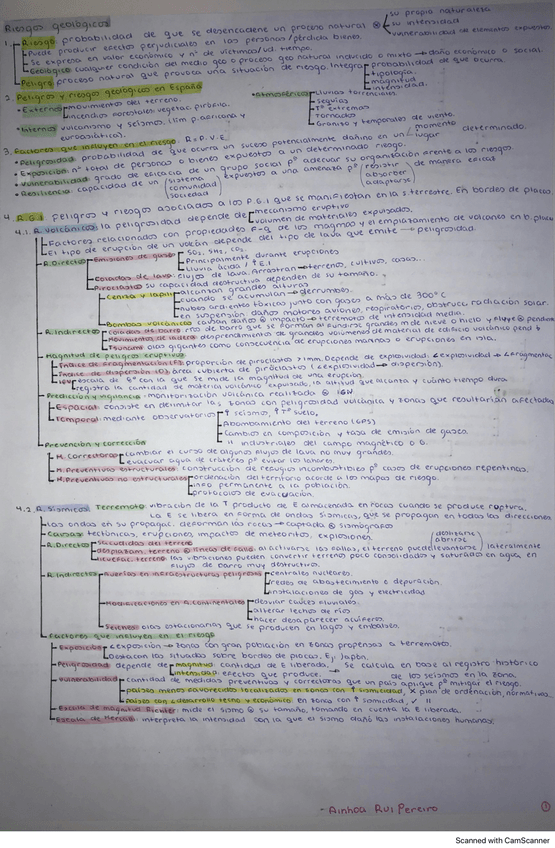 Riesgos geológicos
su propia naturaleza
su intensidad
vulnerabilidad de elementos expuestos.
1. Riesgo probabilidad de que se desencadene un proceso natural
Puede producir efectos perjudiciales en las personas/pérdida bienes.
Se expresa en valor económico y nº de víctimas/ud. tiempo.
Geológico cualquier condición del medio geo o proceso geo natural inducido o mixto → daño económico a social.
Peligro proceso natural que provoca una situación de riesgo. Integra probabilidad de que ocurra.
tipología.
magnitud
intensidad.
2. Peligros y riesgos geológicos en España
Externo movimientos del terreno.
incendios forestales vegetac. pirófila.
Internos vulcanismo y seismos. (lim p. africana y euroasiática).
Atmosféricos lluvias torrenciales.
sequías
Tº extremos
tornados
Granizo y temporales de viento.
3. Factores que influyen en el riesgo. R = P.V.E
Peligrosidad probabilidad de que ocurra un suceso potencialmente dañino en un momento/lugar determinado.
Exposición nº total de personas o bienes expuestos a un determinado riesgo.
Vulnerabilidad grado de eficacia de un grupo social pº adecuar su organización frente a los riesgos.
Resiliencia capacidad de un (sistema comunidad sociedad) expuestos a una amenaza pº (resistir absorber adaptarse) de manera eficaz
4. R.G.I peligros y riesgos asociados a los P.G.I que se manifiestan en la s. terrestre. En bordes de placas.
4.1 R. Volcánicos: la peligrosidad depende de mecanismo eruptivo
volumen de materiales expulsados.
Factores relacionados con propiedades F-Q de los magmas y el emplazamiento de volcanes en b. placa
El tipo de erupción de un volcán depende del tipo de lava que emite → peligrosidad.
R. Directos Emisiones de gases SO2, SH2, CO2.
Principalmente durante erupciones
lluvia ácida / E.I
Coladas de lava: flujos de lava. Arrastran → terrenos, cultivos, casas...
Piroclastos su capacidad destructiva depende de su tamaño.
Ceniza y lapilli alcanzan grandes alturas
cuando se acumulan → derrumbes.
nubes ardientes tóxicas junto con gases a más de 300ºc
en suspensión daños motores aviones, respiratorio, obstrucc. radiación solar.
Bombas volcánicas causan daños @ impacto → terremoto de intensidad media.
R. Indirectos Coladas de barro: río de barro que se forman al fundirse grandes m de nieve o hielo y fluye @ pendiente
Movimientos de ladera desprendimientos de grandes volúmenes de material de edificio volcánico pend
Tsunami olas gigantes como consecuencia de erupciones marinas o erupciones en isla.
Magnitud de peligros eruptivos
Índice de fragmentación (F) proporción de piroclastos > 1mm. Depende de explosividad.
Índice de dispersión (D) área cubierta de piroclastos (explosividad → dispersión).
IEV escala de 8º con la que se mide la magnitud de una erupción.
registra la cantidad de materia volcánica expulsada, la altitud que alcanza y cuánto tiempo dura
Predicción y vigilancia: monitorización volcánica realizada @ IGN
Espacial: consiste en delimitar las zonas con peligrosidad volcánica y zonas que resultarían afectadas
Temporal mediante observatorios ↑ seísmos, ↑ Tª suelo,
Abombamiento del terreno (GPS)
Cambios en composición y tasa de emisión de gases.
" industriales del campo magnético o G.
Prevención y corrección
M. Correctoras cambiar el curso de algunos flujos de lava no muy grandes.
evacuar agua de cráteres pº evitar los lahares.
M. Preventivas estructurales: construcción de refugios incombustibles pº casos de erupciones repentinas.
M. Preventivas no estructurales ordenación del territorio acorde a los mapas de riesgo.
info permanente a la población.
protocolos de evacuación.
4.2 R. Sísmicos. Terremoto vibración de la T producto de E almacenada en rocas cuando se produce ruptura.
La E se libera en forma de ondas sísmicas, que se propagan en todas las direcciones
Las ondas en su propagac. deforman las rocas → captada @ sismógrafos
Causas: tectónicas, erupciones, impactos de meteoritos, explosiones.
R. Directos Sacudidas del terreno
desplazam. terreno @ líneas de falla. al activarse las fallas, el terreno puede levantarse (abrirse) lateralmente
licuefac. terreno las vibraciones pueden convertir terreno poco consolidados y saturado en agua, en flujos de barro muy destructivos.
R. Indirectos Averías en infraestructuras peligrosas centrales nucleares.
redes de abastecimiento e depuración.
instalaciones de gas y electricidad
Modificaciones en A. continentales desviar cauces fluviales.
alterar lechos de ríos
hacer desaparecer acuíferos
Seiches olas estacionarias que se producen en lagos y embalses.
Factores que influyen en el riesgo
Exposición exposición → zonas con gran población en zonas propensas a terremoto.
Destacan los situados sobre bordes de placas. Ej. Japón.
Peligrosidad depende de magnitud: cantidad de E liberada. → se calcula en base al registro histórico de los seísmos en la zona.
intensidad efectos que produce.
Vulnerabilidad cantidad de medidas preventivas y correctoras que un país aplique pº mitigar el riesgo.
países menos favorecidos localizados en zonas con ↑ sismicidad, x plan de ordenación, normativas
países con + desarrollo tecno y económico en zonas con ↑ sismicidad, ✓ "
Escala de magnitud Richter: mide el sismo @ su tamaño, tomando en cuenta la E liberada.
Escala de Mercalli: interpreta la intensidad con la que el sismo dañó las instalaciones humanas.
- Ainhoa Rui Pereiro
①
Scanned with CamScanner